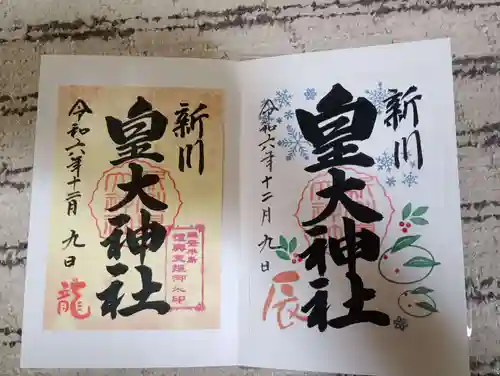 新川
皇大神社
令和六年十二月九日
龍
新川
皇大神社
令和六年十二月九日
辰